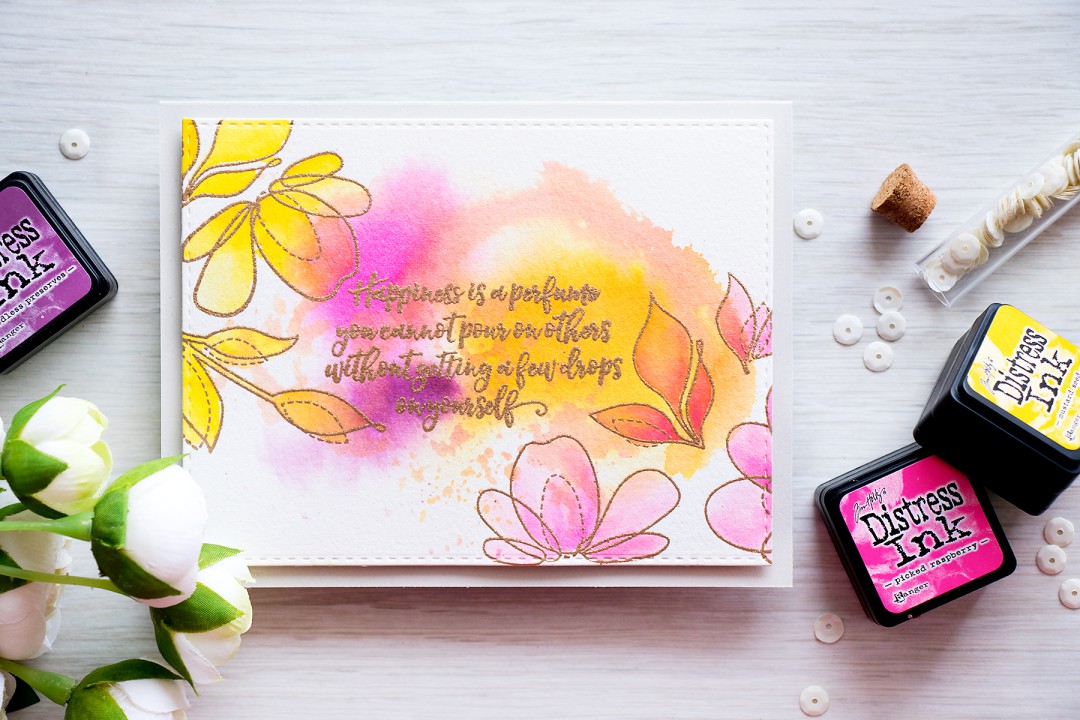 Happiness is a perfume
you cannot pour on others
without getting a few drops
on yourself
Distress
Ink
mustard seed
Ranger
Tim Holtz
Distress
Ink
— picked raspberry —
Ranger
Ink
preserves —